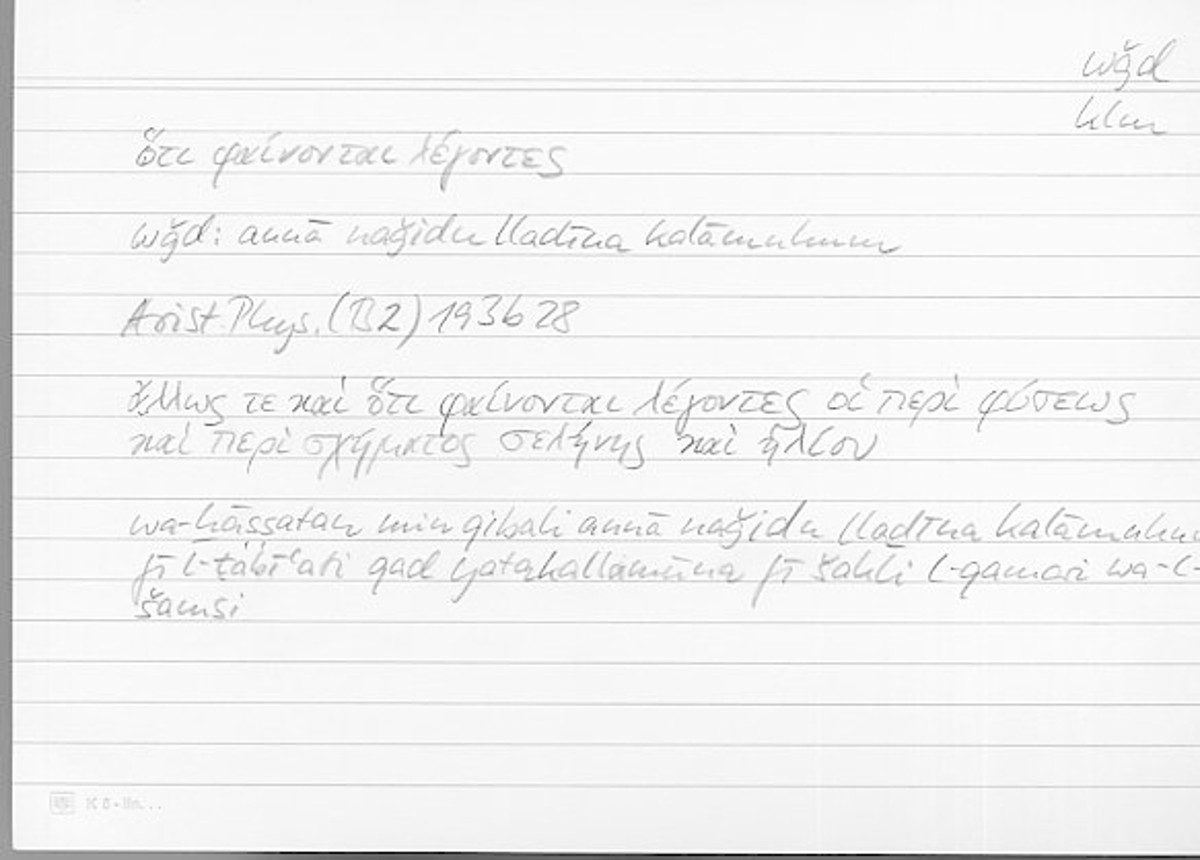 wǧd
klm
ὅτι φαίνονται λέγοντες
wǧd: annā naǧidu lladīna kalāmuhum
Arist. Phys. (B2) 193b28
ἄλλως τε καὶ ὅτι φαίνονται λέγοντες οἱ περὶ φύσεως
καὶ περὶ σχήματος σελήνης καὶ ἡλίου
wa-ḫāssatan min qibali annā naǧidu lladīna kalāmuhu
fī l-ṭabīʿati qad yatakallamūna fī šakli l-qamari wa-l-
šamsi